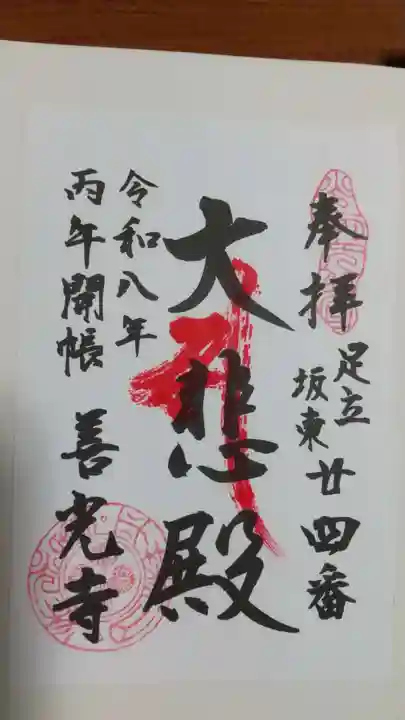 奉拝
足立
坂東
廿四番
大悲殿
令和八年
丙午開帳
善光寺